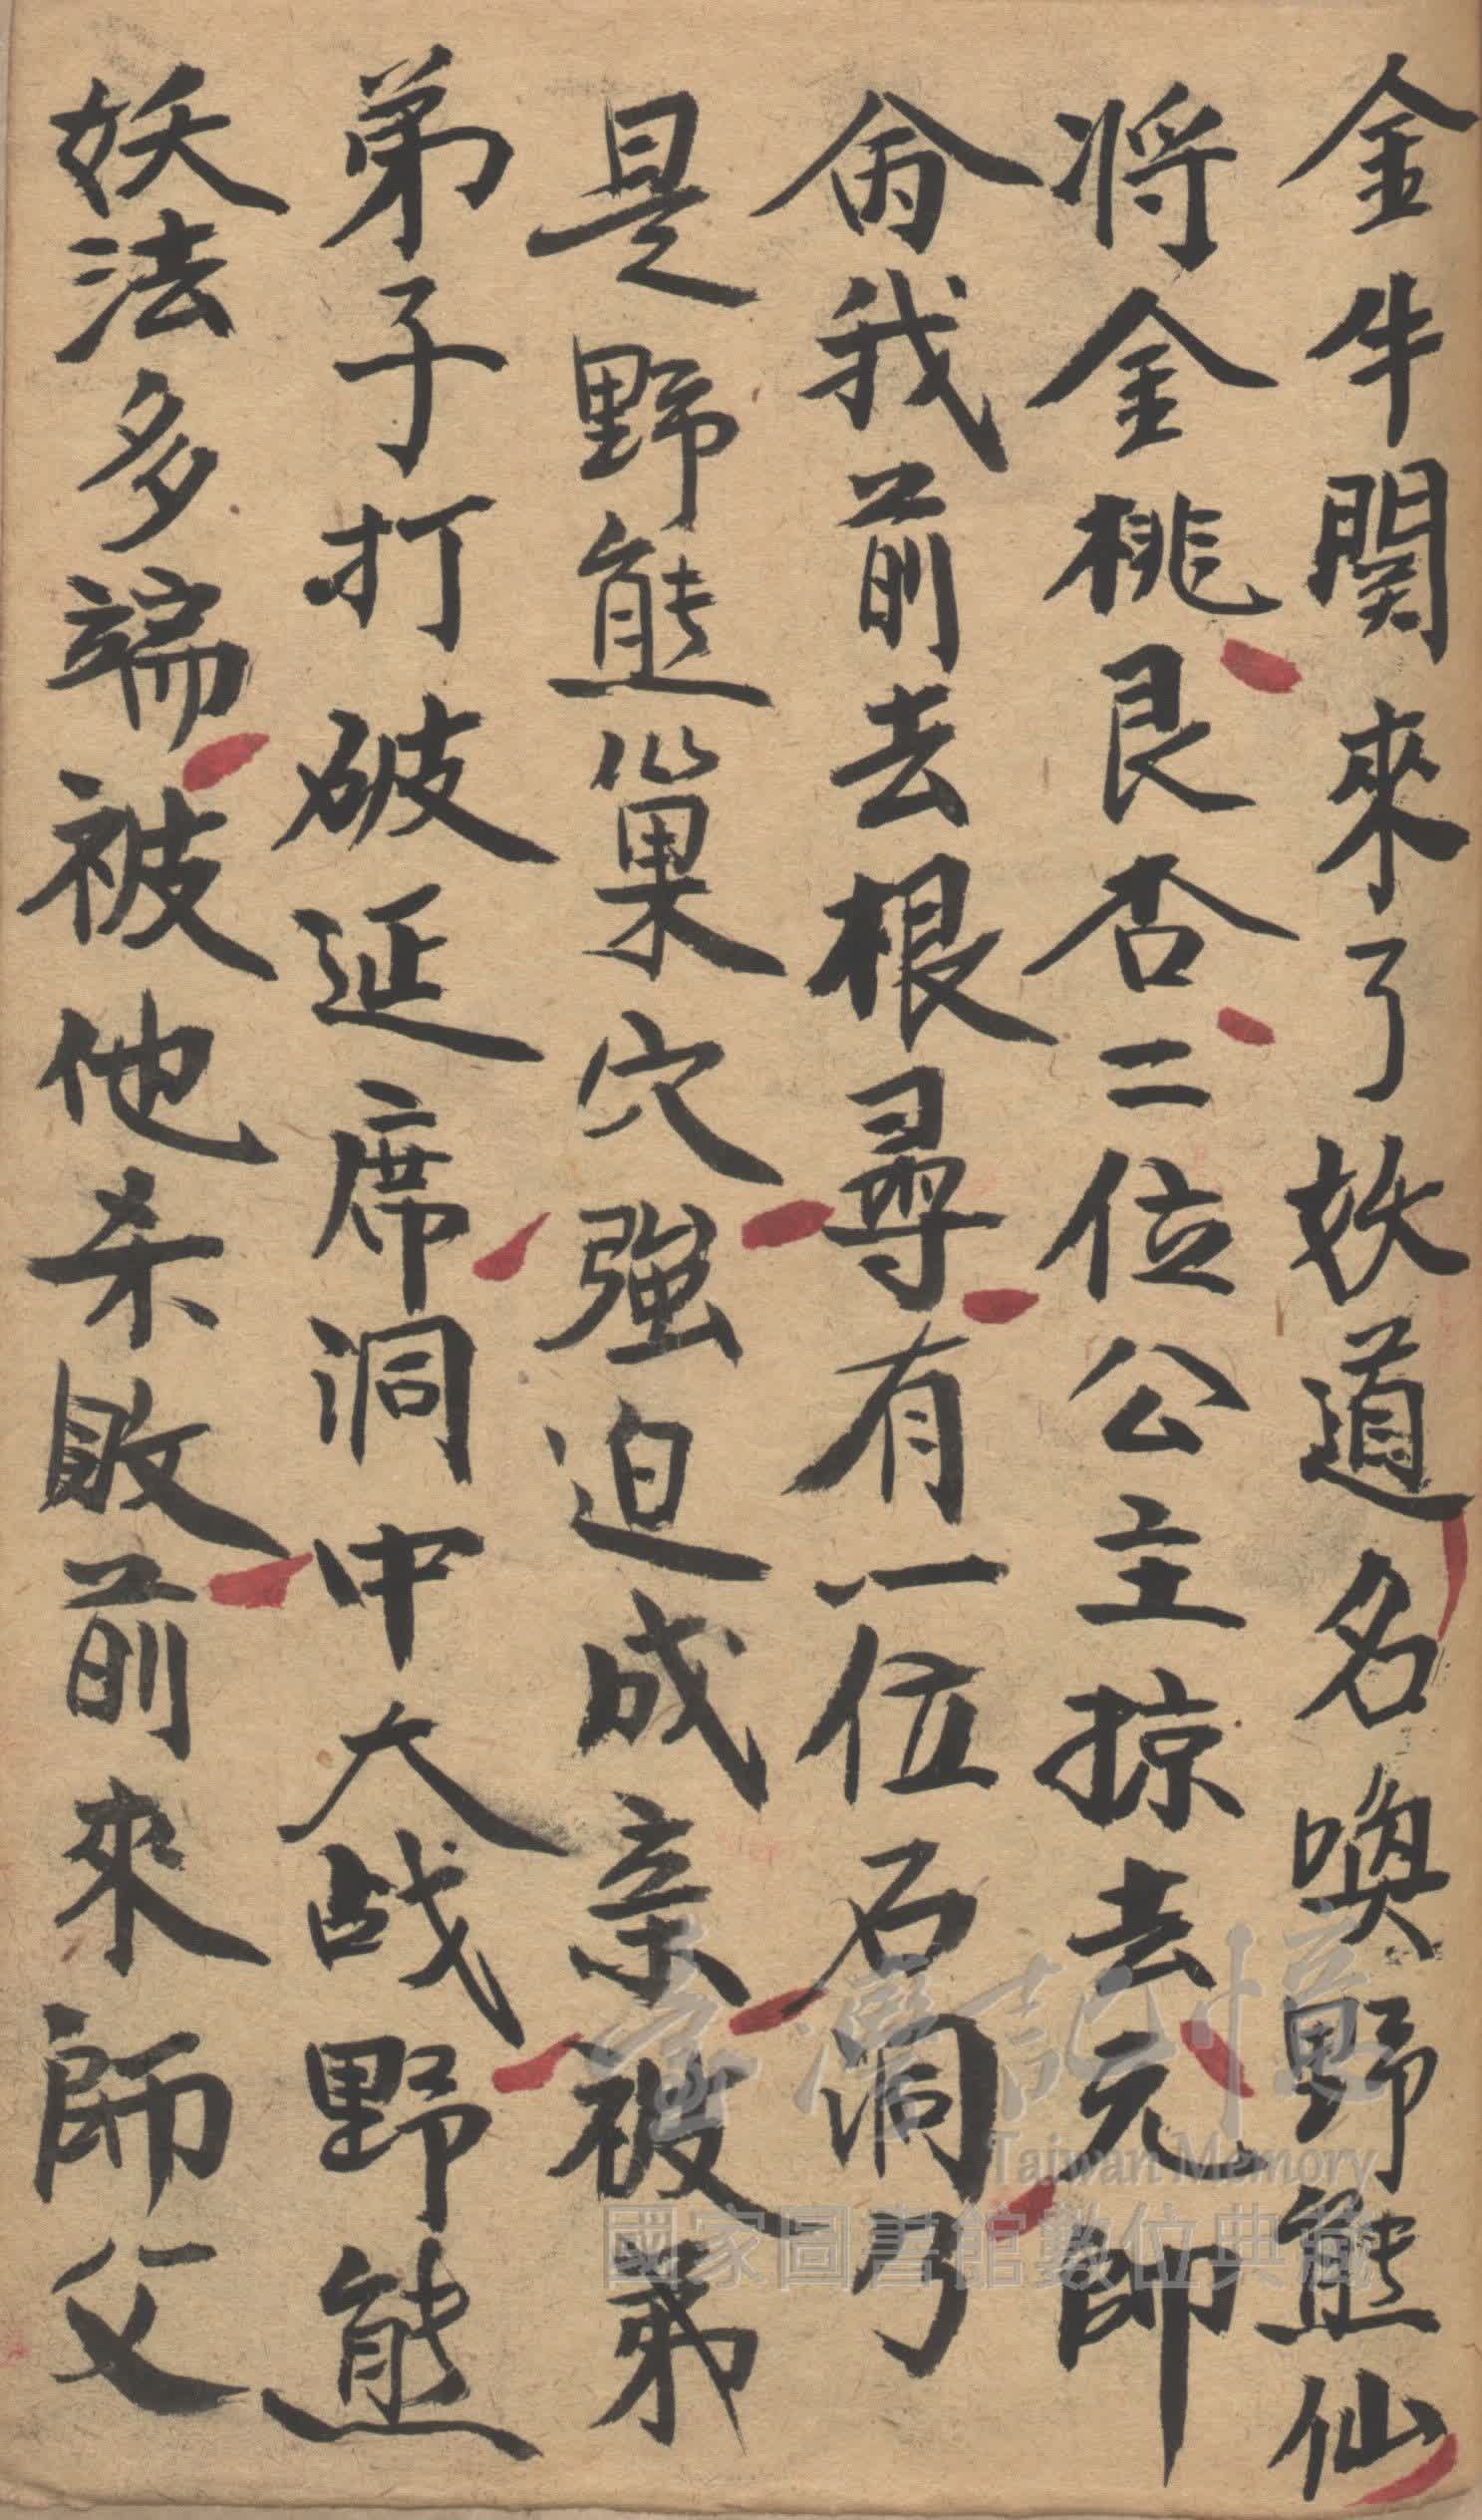 金牛関來了妖道名喚野熊仙
将金桃艮杏二位公主掠去元帥
命我前去根尋有一位石洞乃
是野熊巢穴強迫成亲被弟
弟子打破延席洞中大战野熊
妖法多端被他杀敗前來師父
臺灣記憶
Taiwan Memory
國家圖書館數位典藏